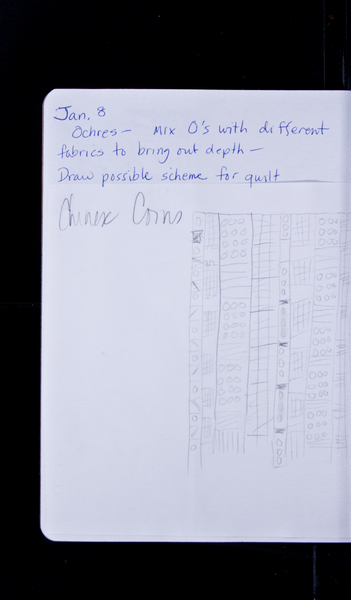 Jan. 8
Ochres - Mix O's with different
fabrics to bring out depth -
Draw possible scheme for quilt
Chinese Coins